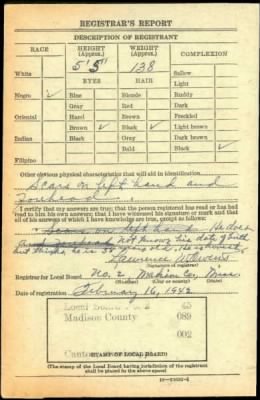 REGISTRAR'S REPORT
DESCRIPTION OF REGISTRANT
RACE HEIGHT (Approx.) WEIGHT (Approx.) COMPLEXION
5' 5" 138
EYES HAIR
White Sallow
Light
Negro ✓ Blue Blonde Ruddy
Gray Red Dark
Oriental Hazel Brown Freckled
Brown ✓ Black ✓ Light brown
Indian Black Gray Dark brown
Bald Black ✓
Filipino
Other obvious physical characteristics that will aid in identification
Scars on left hand and
forehead
I certify that my answers are true; that the person registered has read or has had
read to him his own answers; that I have witnessed his signature or mark and that
all of his answers of which I have knowledge are true, except as follows:
Scars on left hand. He does
and forehead not know his date of birth
and thinks he is
Lawrence W. Owens
(Signature of registrar)
Registrar for Local Board No. 2 Madison Co, Miss.
(Number) (City or county) (State)
Date of registration February 16, 1942
Local Board No. 2 45
Madison County 089
002
STAMP OF LOCAL BOARD
(The stamp of the Local Board having jurisdiction of the registrant
shall be placed in the above space)